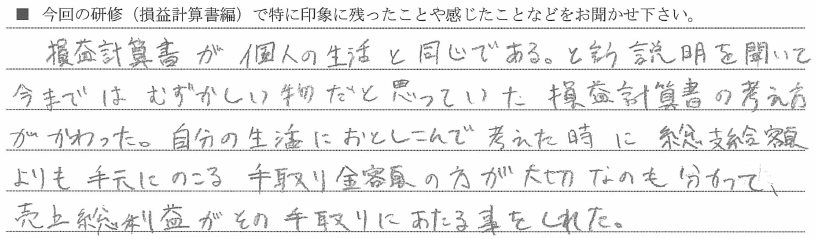 ■ 今回の研修（損益計算書編）で特に印象に残ったことや感じたことなどをお聞かせ下さい。
損益計算書が個人の生活と同じである。と的説明を聞いて
今まではむずかしい物だと思っていた損益計算書の考え方
がかわった。自分の生活におとしこんで考えた時に総支給額
よりも手元にのこる手取り金額の方が大切なのも分かって、
売上総利益がその手取りにあたる事をしれた。